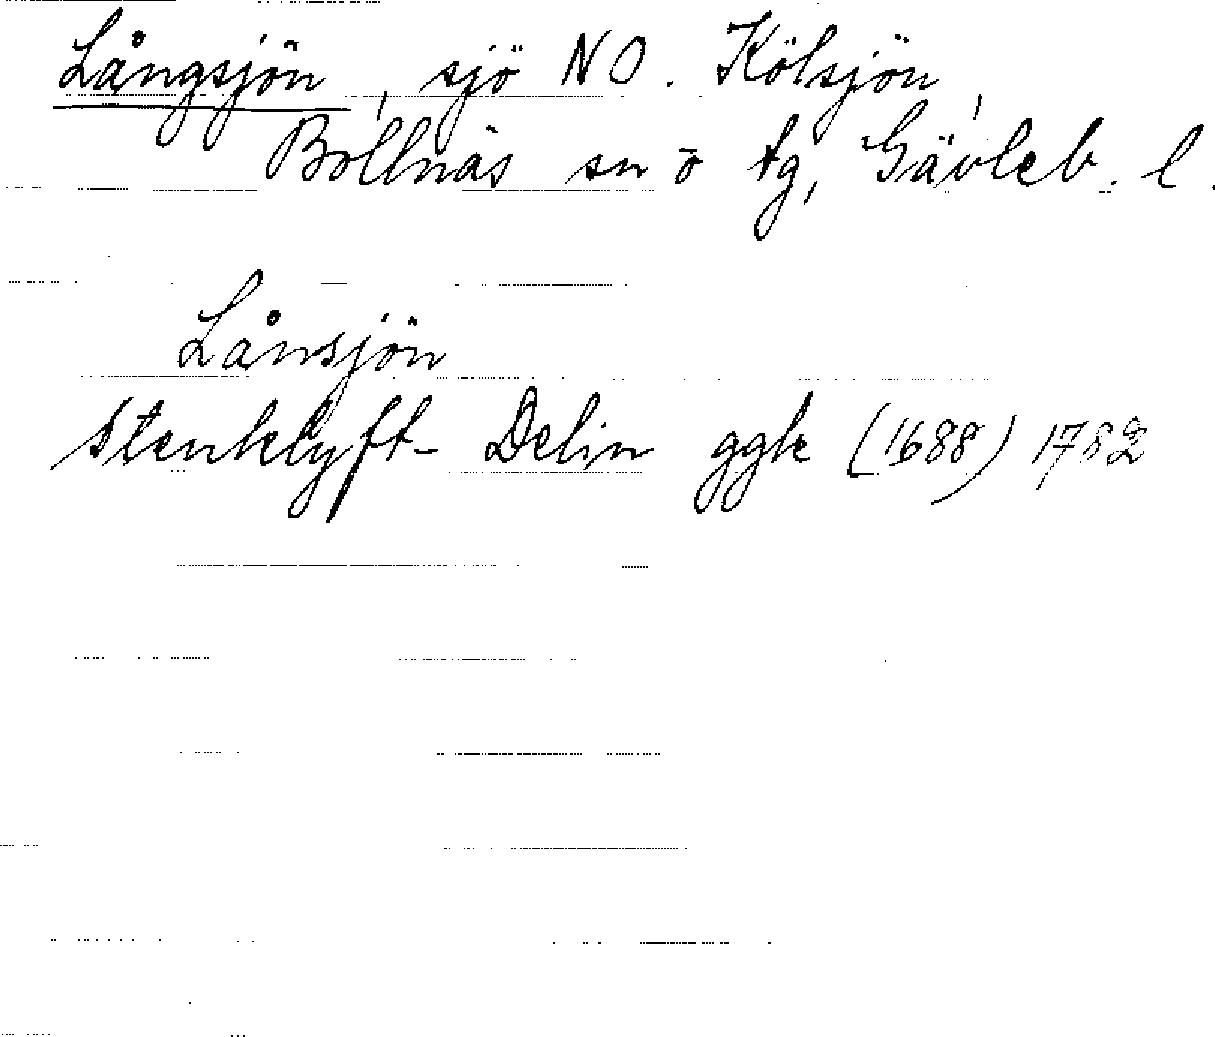 Långsjön, sjö NO. Kölsjön,
Bollnäs sn o tg, Gävleb. l.
Lånsjön
Stenklyft- Delin ggk (1688) 1782